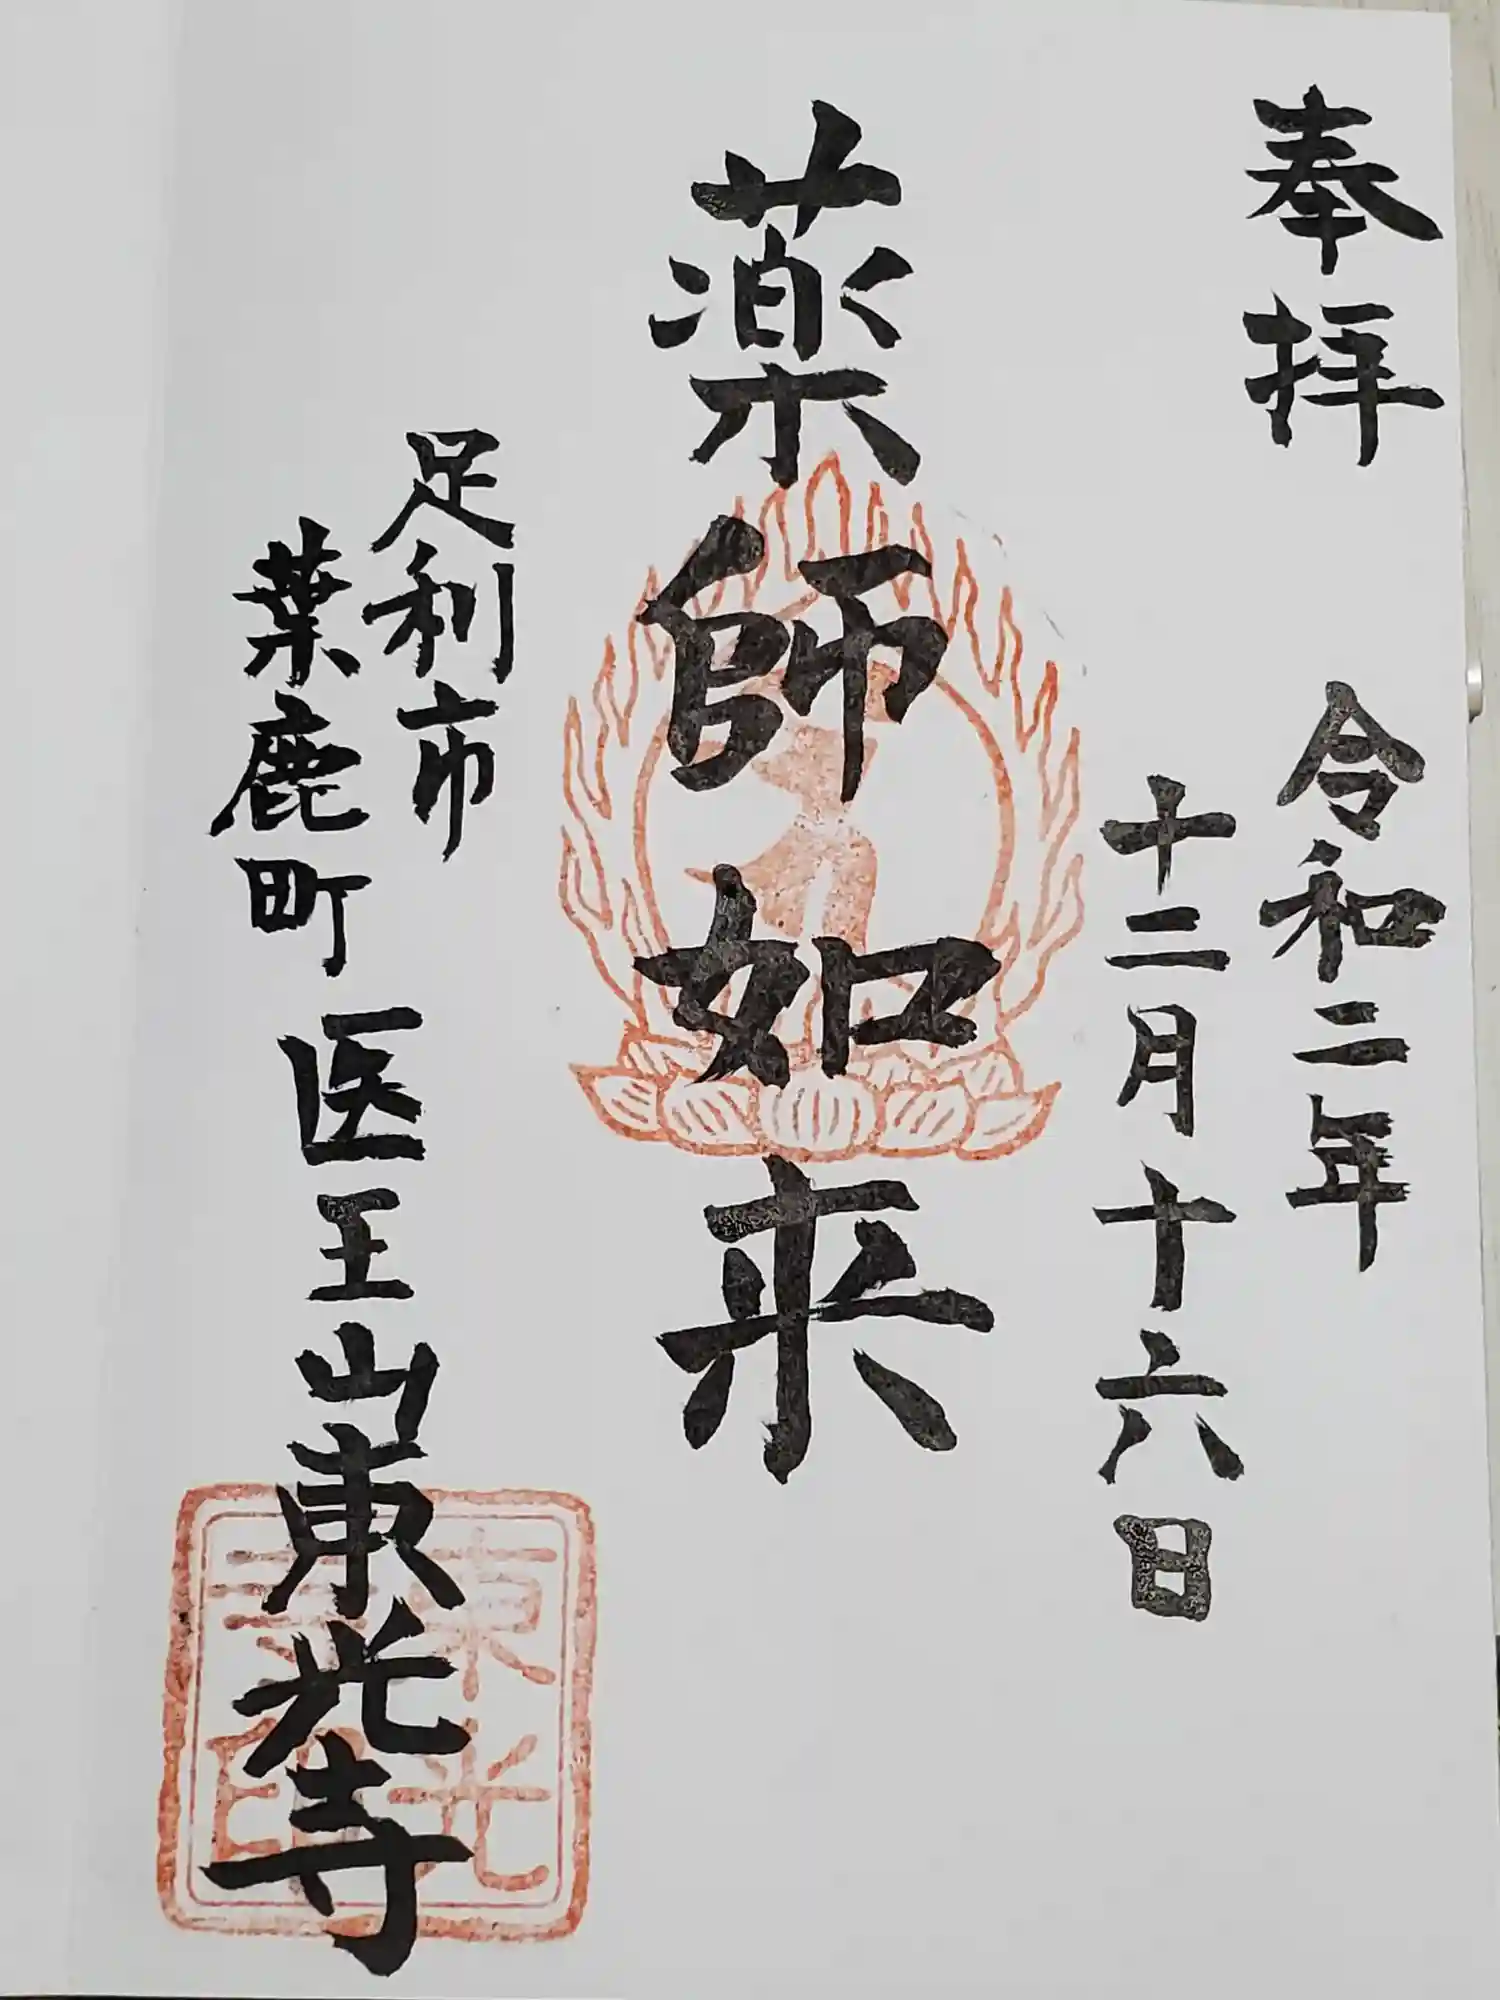 奉拝
令和二年
十二月十六日
薬師如来
足利市
葉鹿町
医王山東光寺
東光
寺印